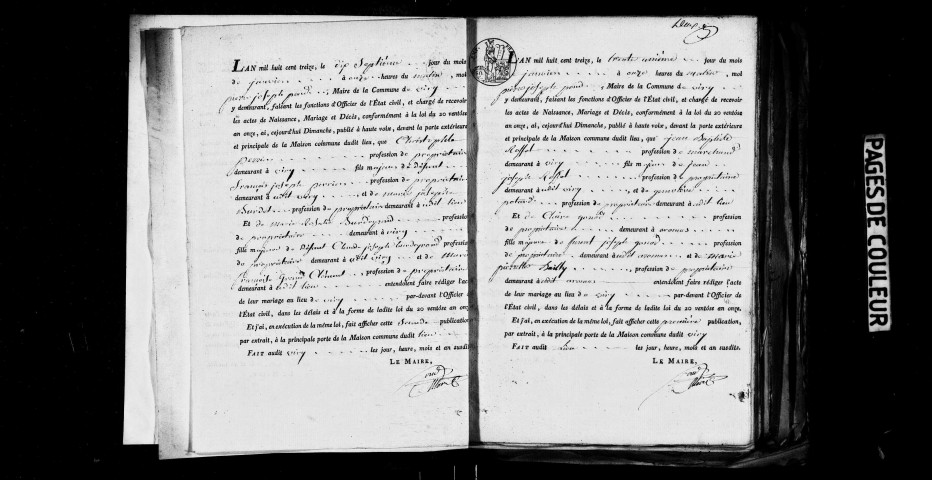 L'AN mil huit cent treize, le dix Septieme jour du mois
de janvier à onze heures du matin, moi
pierre joseph , Maire de la Commune de viry
y demeurant, faisant les fonctions d'Officier de l'État civil, et chargé de recevoir
les actes de Naissance, Mariage et Décès, conformément à la loi du 20 ventôse
an onze, ai, cejourd'hui Dimanche, publié à haute voix, devant la porte extérieure
et principale de la Maison commune dudit lieu, que Christophle
perrin profession de propriétaire
demeurant à viry fils majeur de Défunt
François joseph perrin profession de propriétaire
demeurant à udit viry et de marie josephe
profession de propriétaire demeurant à udit lieu
Et de marie profession
de propriétaire demeurant à viry
fille majeure de Défunt Claude joseph profession
de propriétaire demeurant à udit viry et de marie
françoise Clément, profession de propriétaire
demeurant à udit lieu entendoient faire rédiger l'acte
de leur mariage au lieu de viry par-devant l'Officier de
l'État civil, dans les délais et à la forme de ladite loi du 20 ventôse an onze.
Et j'ai, en exécution de la même loi, fait afficher cette Seconde publication,
par extrait, à la principale porte de la Maison commune dudit lieu
FAIT audit viry les jour, heure, mois et an susdits.
LE MAIRE,
L'AN mil huit cent treize, le trente unième jour du mois
janvier à onze heures du matin, moi
pierre joseph , Maire de la Commune de viry
y demeurant, faisant les fonctions d'Officier de l'État civil, et chargé de recevoir
les actes de Naissance, Mariage et Décès, conformément à la loi du 20 ventôse
an onze, ai, cejourd'hui Dimanche, publié à haute voix, devant la porte extérieure
et principale de la Maison commune dudit lieu, que jean Baptiste
Rosset profession de marchand
demeurant à viry fils majeur de jean
joseph Rosset profession de propriétaire
demeurant à udit viry, et de
profession de propriétaire demeurant à udit lieu
Et de Claire profession
de propriétaire demeurant à
fille majeure de joseph profession
de propriétaire demeurant à udit et de marie
pierrette Bailly, profession de propriétaire
demeurant à udit entendoient faire rédiger l'acte
de leur mariage au lieu de viry par-devant l'Officier de
l'État civil, dans les délais et à la forme de ladite loi du 20 ventôse an onze.
Et j'ai, en exécution de la même loi, fait afficher cette première publication,
par extrait, à la principale porte de la Maison commune dudit viry
FAIT audit lieu les jour, heure, mois et an susdits.
LE MAIRE,
PAGES DE COULEUR